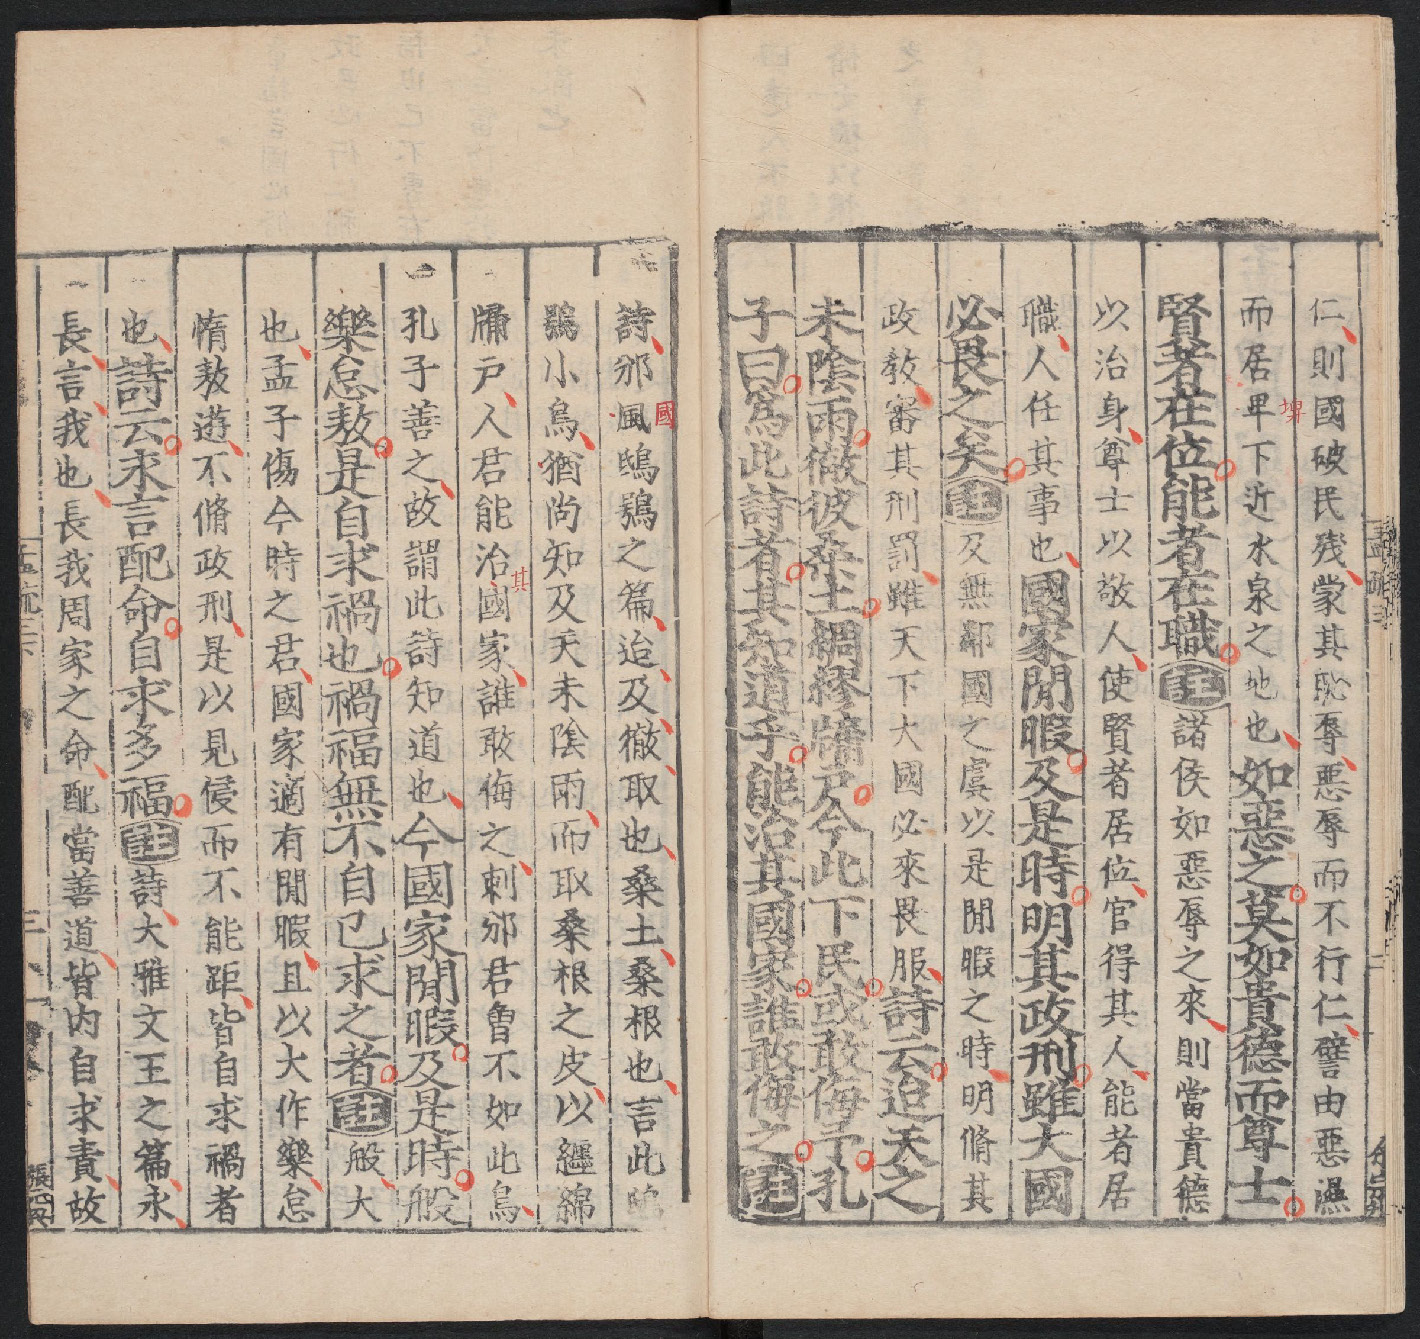 仁則國破民殘蒙其恥辱惡辱而不行仁譬由惡濕
而居卑下近水泉之地也如惡之莫如貴德而尊士
埤
賢者在位能者在職註諸侯如惡辱之來則當貴德
以治身尊士以敬人使賢者居位官得其人能者居
職人任其事也國家閒暇及是時明其政刑雖大國
必畏之矣註及無鄰國之虞以是閒暇之時明脩其
政教審其刑罰雖天下大國必來畏服詩云迨天之
未陰雨徹彼桑土綢繆牖戶今此下民或敢侮予孔
子曰爲此詩者其知道乎能治其國家誰敢侮之註
詩邠風鴟鴞之篇迨及徹取也桑土桑根也言此鴟
國
鴞小鳥猶尚知及天未陰雨而取桑根之皮以纏綿
牖戶人君能治國家誰敢侮之刺邠君曾不如此鳥
其
孔子善之故謂此詩知道也今國家閒暇及是時般
樂怠敖是自求禍也禍福無不自己求之者註般大
也孟子傷今時之君國家適有閒暇且以大作樂怠
惰敖遊不脩政刑是以見侵而不能距皆自求禍者
也詩云永言配命自求多福註詩大雅文王之篇永
長言我也長我周家之命配當善道皆内自求責故